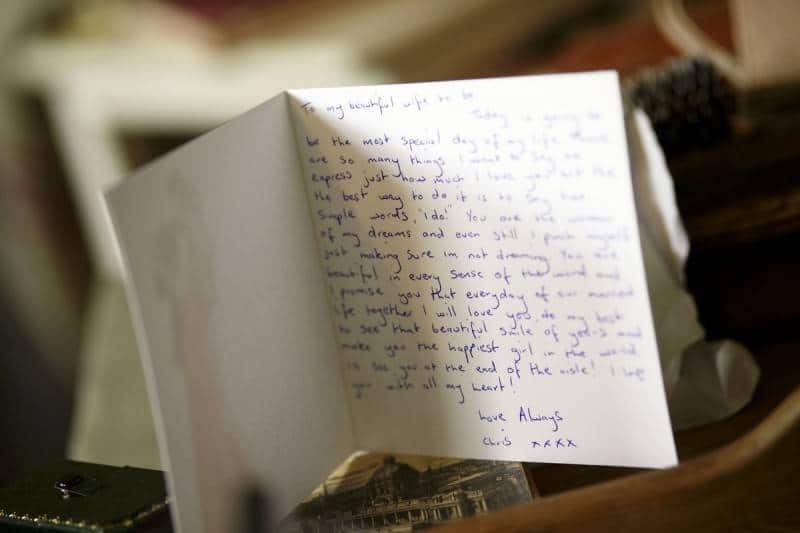 To my beautiful wife to be
Today is going to
be the most special day of my life. There
are so many things I want to say to
express just how much I love you but the
the best way to do it is to say two
simple words, "I do!" You are the woman
of my dreams and even still I pinch myself
just making sure im not dreaming. You are
beautiful in every sense of the word and
I promise you that everyday of our married
life together I will love you, do my best
to see that beautiful smile of yours and
make you the happiest girl in the world.
see you at the end of the aisle! I love
you with all my heart!
Love Always
Chris xxxx